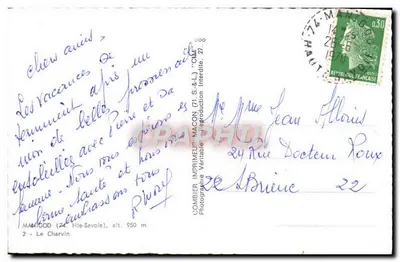 Chers amis,
Les vacances se
terminent après un
mois de belles promenades
ensoleillées avec Pierre et sa
femme. Nous vous espérons en
bonne santé et nous vous
embrassons tous
MANIGOD (74. Hte-Savoie), alt. 950 m
2 - Le Charvin
COMBIER IMPRIMEUR MACON (71. S.-&-L.) "CIM"
Photographie Véritable - Reproduction Interdite. 27
74 - MANIGOD
HAUTE
0,30
REPUBLIQUE FRANÇAISE
Mr Mme Jean
24 Rue Docteur Roux
22 St Brieuc 22